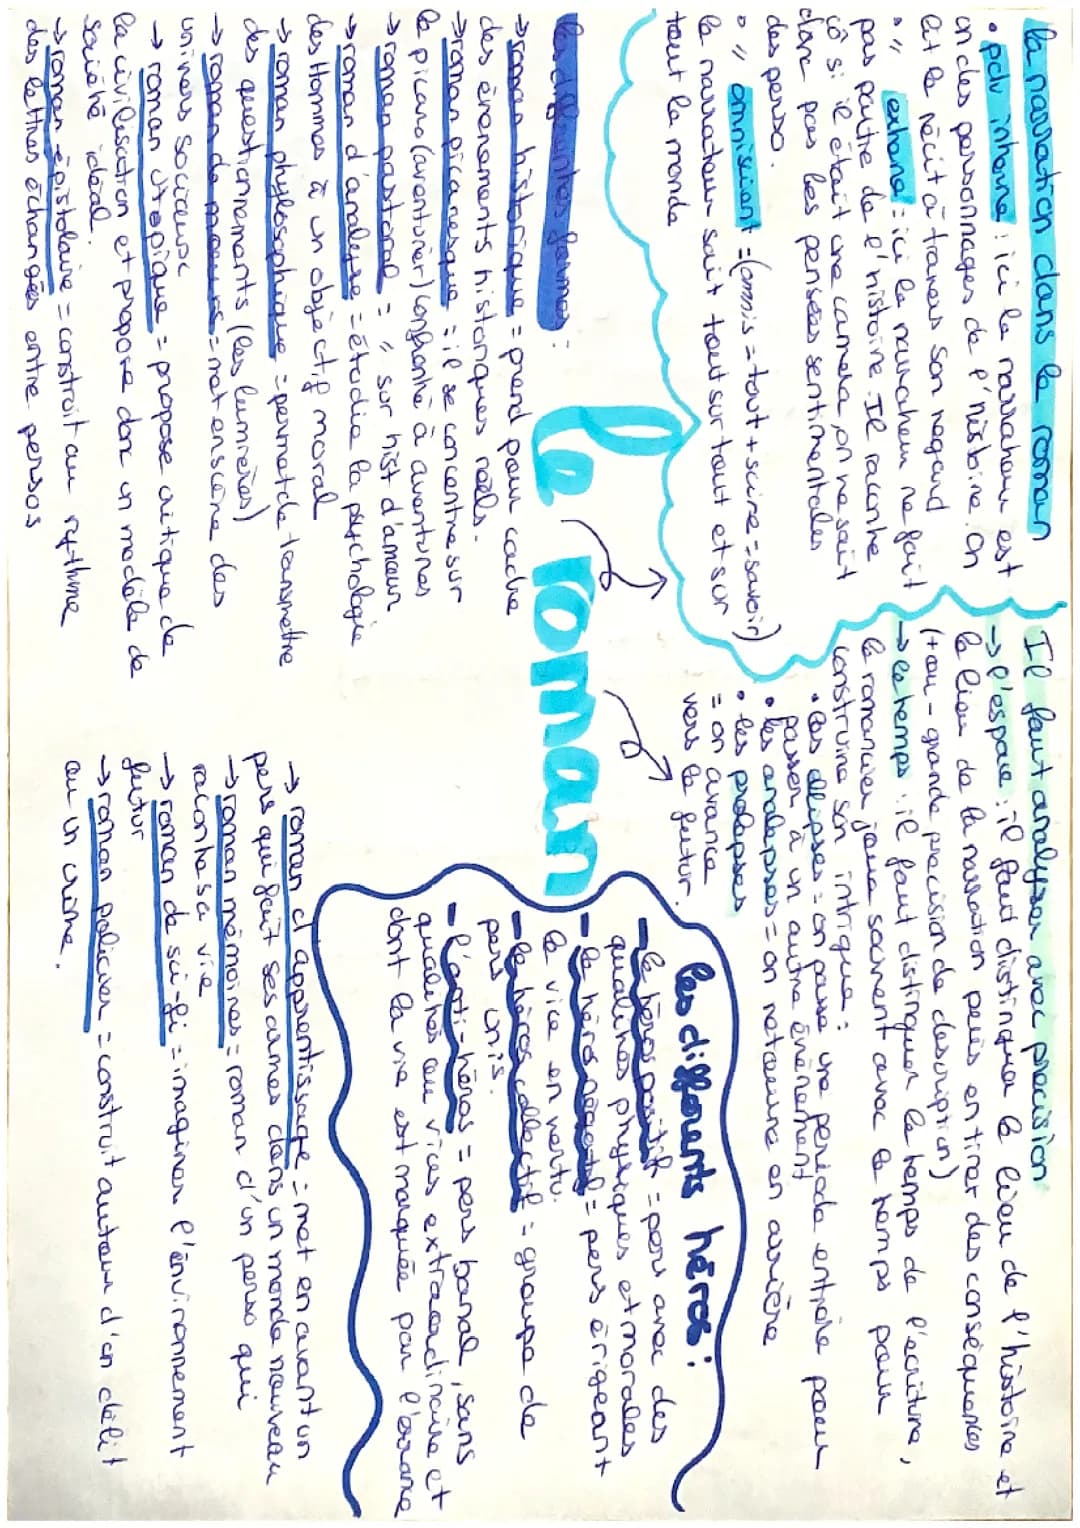 la narration dans le roman
• pdv interne : ici le narrateur est
un des personnages de l'histoire. on
lit le récit à travers son regard
• " externe : ici le narrateur ne fait
pas partie de l'histoire. Il raconte
cô si il était une camera, on ne sait
donc pas les pensées sentimentales
des perso.
• " omniscient = (omnis = tout + scire = savoir)
le narrateur sait tout sur tout et sur
tout le monde
Il faut analyser avec précision
→ l'espace : il faut distinguer le lieu de l'histoire et
le lieu de la narration puis en tirer des conséquences
(+ ou - grande précision de description)
→ le temps : il faut distinguer le temps de l'écriture,
le romancier joue souvent avec le temps pour
construire son intrigue :
• les ellipses = on passe une période entière pour
passer à un autre événement
• les analepses = on retourne en arrière
• les prolepses
= on avance
vers le futur.
le roman
les différentes formes :
→ roman historique = prend pour cadre
des événements historiques réels.
→ roman picaresque = il se concentre sur
le picaro (aventurier) confronté à aventures
→ roman pastoral = " sur hist d'amour
→ roman d'analyse = étudie la psychologie
des Hommes à un objectif moral
→ roman phylosophique = permet de transmettre
des questionnements (les lumières)
→ roman de moeurs = met en scène des
univers sociaux
→ roman utopique = propose critique de
la civilisation et propose donc un modèle de
société idéal.
→ roman épistolaire = construit au rythme
des lettres échangées entre persos
les différents héros :
- le héros positif = pers avec des
qualités physiques et morales
- le héros négatif = pers érigeant
le vice en vertu.
- le héros collectif = groupe de
pers unis.
- l'anti-héros = pers banal, sans
qualités ou vices extraordinaire et
dont la vie est marquée par l'errance
→ roman d'apprentissage = met en avant un
pers qui fait ses armes dans un monde nouveau
→ roman mémoires = roman d'un perso qui
raconte sa vie
→ roman de sci-fi = imaginer l'environnement
futur
→ roman policier = construit autour d'un délit
ou un crime.